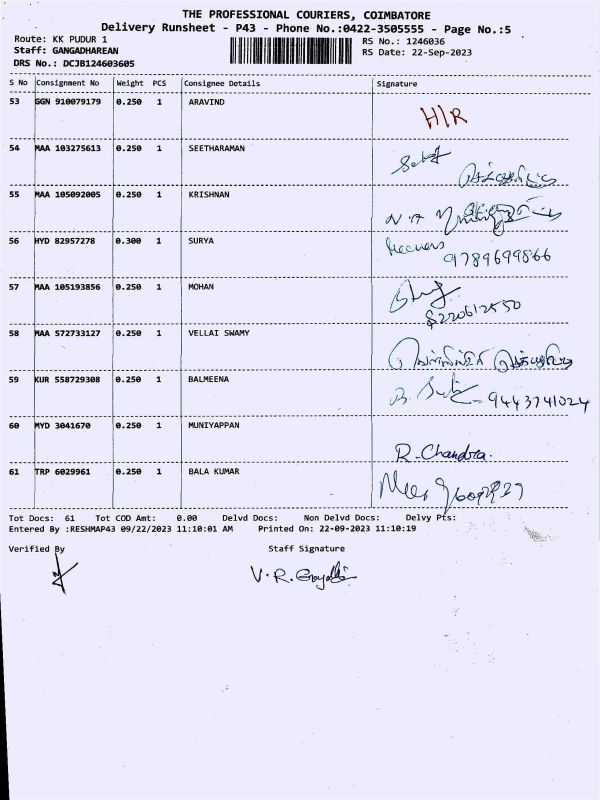 THE PROFESSIONAL COURIERS, COIMBATORE
Delivery Runsheet - P43 - Phone No.:0422-3505555 - Page No.:5
Route: KK PUDUR 1 RS No.: 1246036
Staff: GANGADHAREAN RS Date: 22-Sep-2023
DRS No.: DCJB124603605
S No Consignment No Weight PCS Consignee Details Signature
53 GGN 910079179 0.250 1 ARAVIND H/R
54 MAA 103275613 0.250 1 SEETHARAMAN
55 MAA 105092005 0.250 1 KRISHNAN
56 HYD 82957278 0.300 1 SURYA 9789699866
57 MAA 105193856 0.250 1 MOHAN
58 MAA 572733127 0.250 1 VELLAI SWAMY
59 KUR 558729308 0.250 1 BALMEENA 9443741024
60 MYD 3041670 0.250 1 MUNIYAPPAN R. Chandra.
61 TRP 6029961 0.250 1 BALA KUMAR
Tot Docs: 61 Tot COD Amt: 0.00 Delvd Docs: Non Delvd Docs: Delvy Pts:
Entered By :RESHMAP43 09/22/2023 11:10:01 AM Printed On: 22-09-2023 11:10:19
Verified By Staff Signature
V. R.